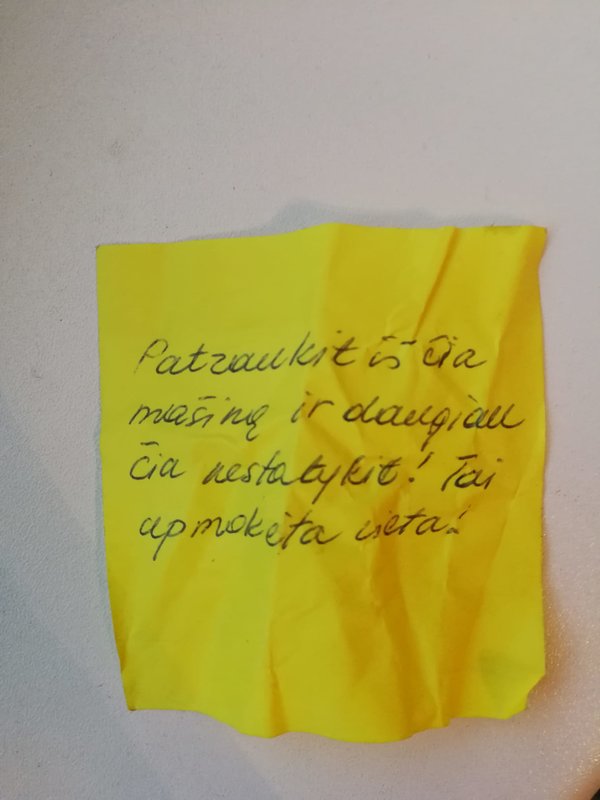 Patraukit iš čia
mašiną ir daugiau
čia nestatykit! Tai
apmokėta vieta!